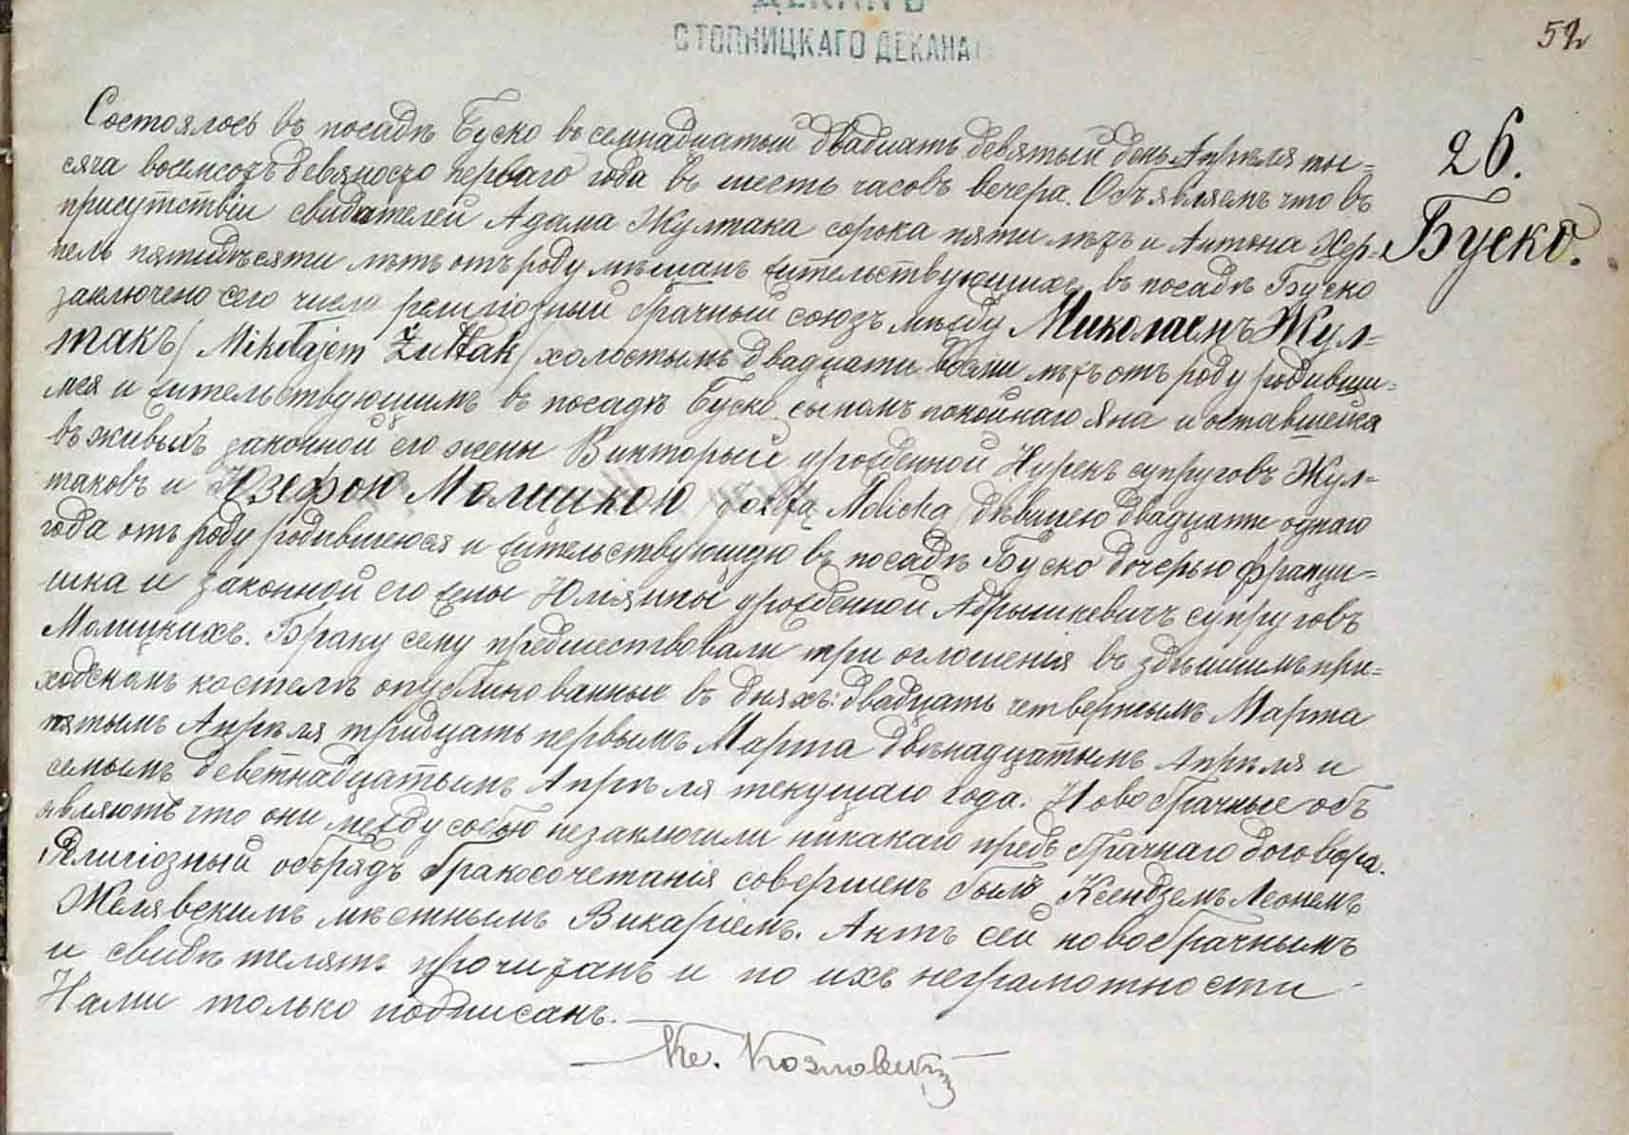 ДЕКАНЪ
СТОПНИЦКАГО ДЕКАНАТ
52
26.
Буско.
Состоялось въ посадѣ Буско въ семнадцатый двадцать девятый день Апрѣля ты=
сяча восемсотъ девяносто перваго года въ шесть часовъ вечера. Объявляемъ что въ
присутствіи свидѣтелей Адама Жултака сорока пяти лѣтъ и Антона Хер-
пель пятидѣсяти лѣтъ отъ роду мѣщанъ жительствующихъ въ посадѣ Буско
заключено сего числа религіозный брачный союзъ между Миколаемъ Жул=
такъ (Mikołajem Żułtak) холостымъ двадцати восьми лѣтъ отъ роду родивши=
мся и жительствующимъ въ посадѣ Буско сыномъ покойнаго Яна и оставшейся
въ живыхъ законной его жены Викторыи урожденной Нурекъ супруговъ Жул=
таковъ и Юзефою Молицкою Józefą Molicką дѣвицею двадцати однаго
года отъ роду родившеюся и жительствующую въ посадѣ Буско дочерью Франци=
шка и законной его жены Юліянны урожденной Адрышкевичъ супруговъ
Молицкихъ. Браку сему предшествовали три оглошенія въ здѣшнимъ при=
ходскомъ костелѣ опубликованные въ дняхъ: двадцать четвертымъ Марта
пятымъ Апрѣля тридцать первымъ Марта двѣнадцатымъ Апрѣля и
семымъ деветнадцатымъ Апрѣля текущаго года. Новобрачные объ
являютъ что они между собою незаключили никакаго предъ брачнаго договора.
Религіозный обърядъ бракосочетанія совершенъ былъ Ксендземъ Леонемъ
Желявскимъ мѣстнымъ Викаріемъ. Актъ сей новобрачнымъ
и свидѣтелямъ прочитанъ и по ихъ неграмотности
Нами только подписанъ.
Кс. Козловскій